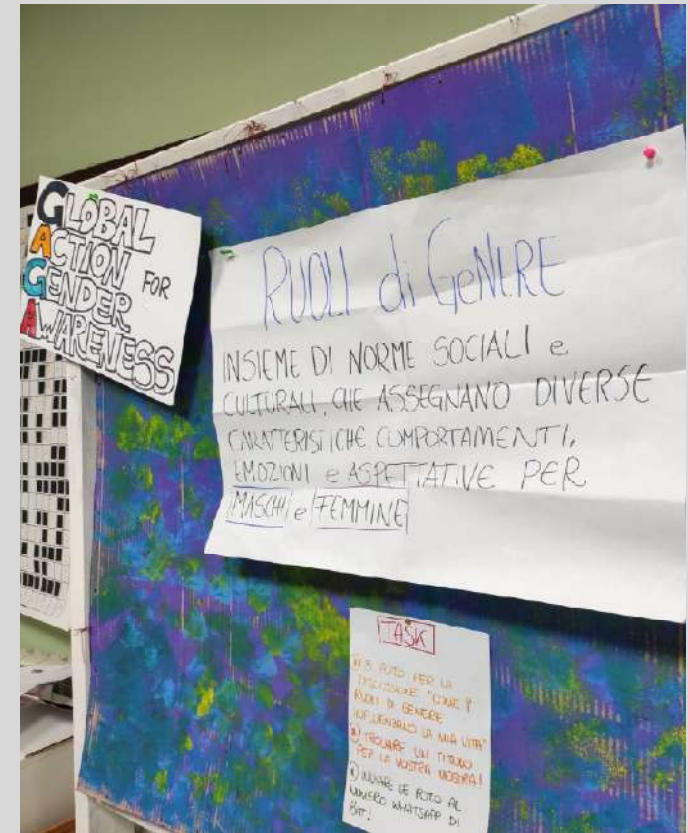 GLOBAL
ACTION FOR
GENDER
AWARENESS
RUOLI di GeNERE
INSIEME DI NORME SOCIALI e
CULTURALI, CHE ASSEGNANO DIVERSE
CARATTERISTICHE COMPORTAMENTI,
EMOZIONI e ASPETTATIVE PER
MASCHI e FEMMINE
TASK
3 FOTO PER LA
DISCUSSIONE "COME I
RUOLI DI GENERE
INFLUENZANO LA MIA VITA"
TROVARE UN TITOLO
PER LA VOSTRA MOSTRA!
INVIARE LE FOTO AL
NUMERO WHATSAPP DI